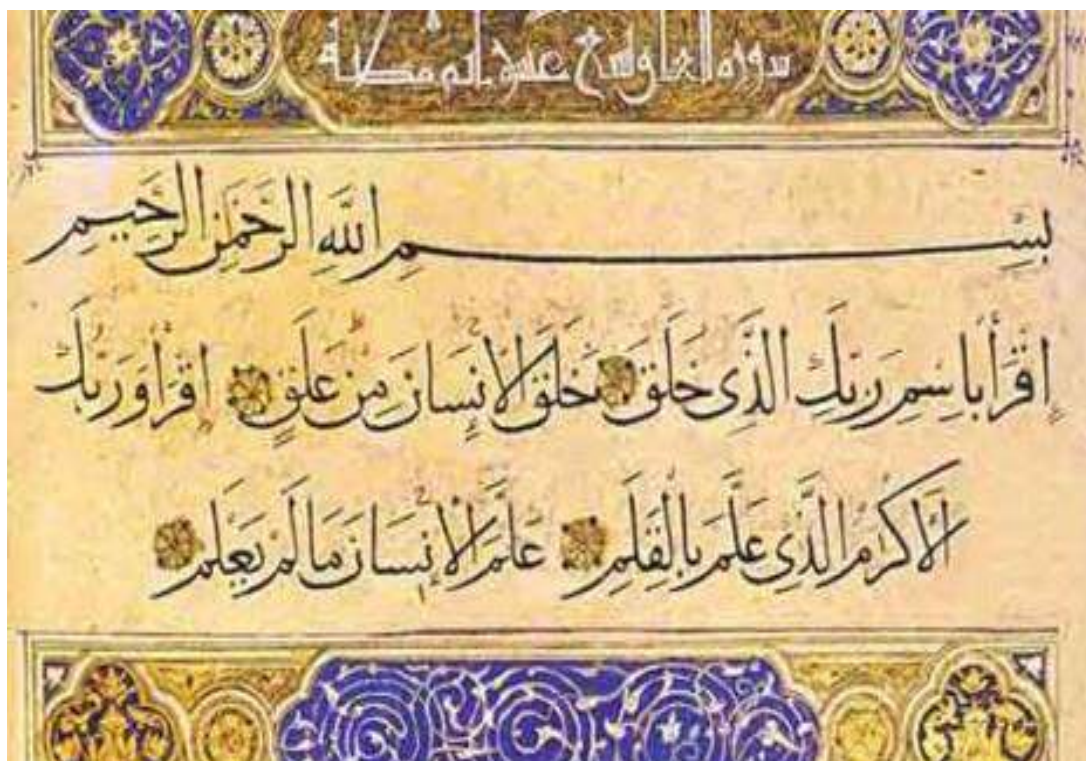 سورة العلق تسع عشرة آية مكية
بِسْمِ اللَّهِ الرَّحْمَنِ الرَّحِيمِ
إِقْرَأْ بِاسْمِ رَبِّكَ الَّذِي خَلَقَ خَلَقَ الْإِنْسَانَ مِنْ عَلَقٍ إِقْرَأْ وَرَبُّكَ
الْأَكْرَمُ الَّذِي عَلَّمَ بِالْقَلَمِ عَلَّمَ الْإِنْسَانَ مَا لَمْ يَعْلَمْ